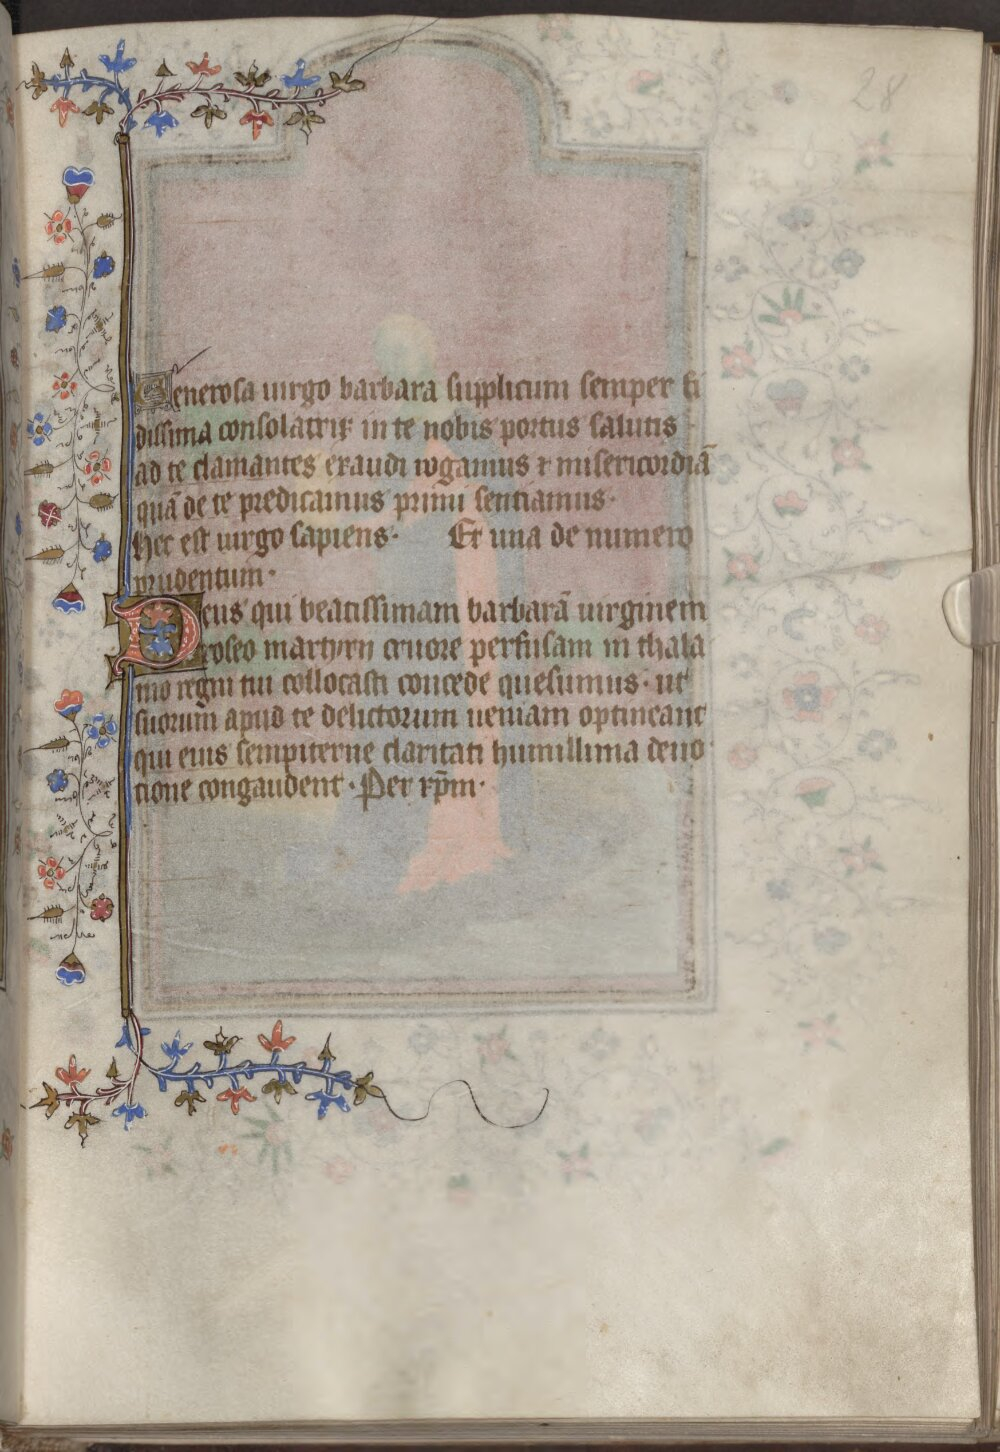 28
Generosa uirgo barbara supplicum semper fi
dissima consolatrix in te nobis portus salutis
ad te clamantes exaudi rogamus ⁊ misericordiā
quā de te predicamus primi sentiamus·
Hec est uirgo sapiens· Et una de numero
prudentum·
Deus qui beatissimam barbarā uirginem
roseo martyrii cruore perfusam in thala
mo regni tui collocasti concede quesumus· ut
suorum apud te delictorum ueniam optineant
qui eius sempiterne claritati humillima deuo
tione congaudent· Per xp̄m·